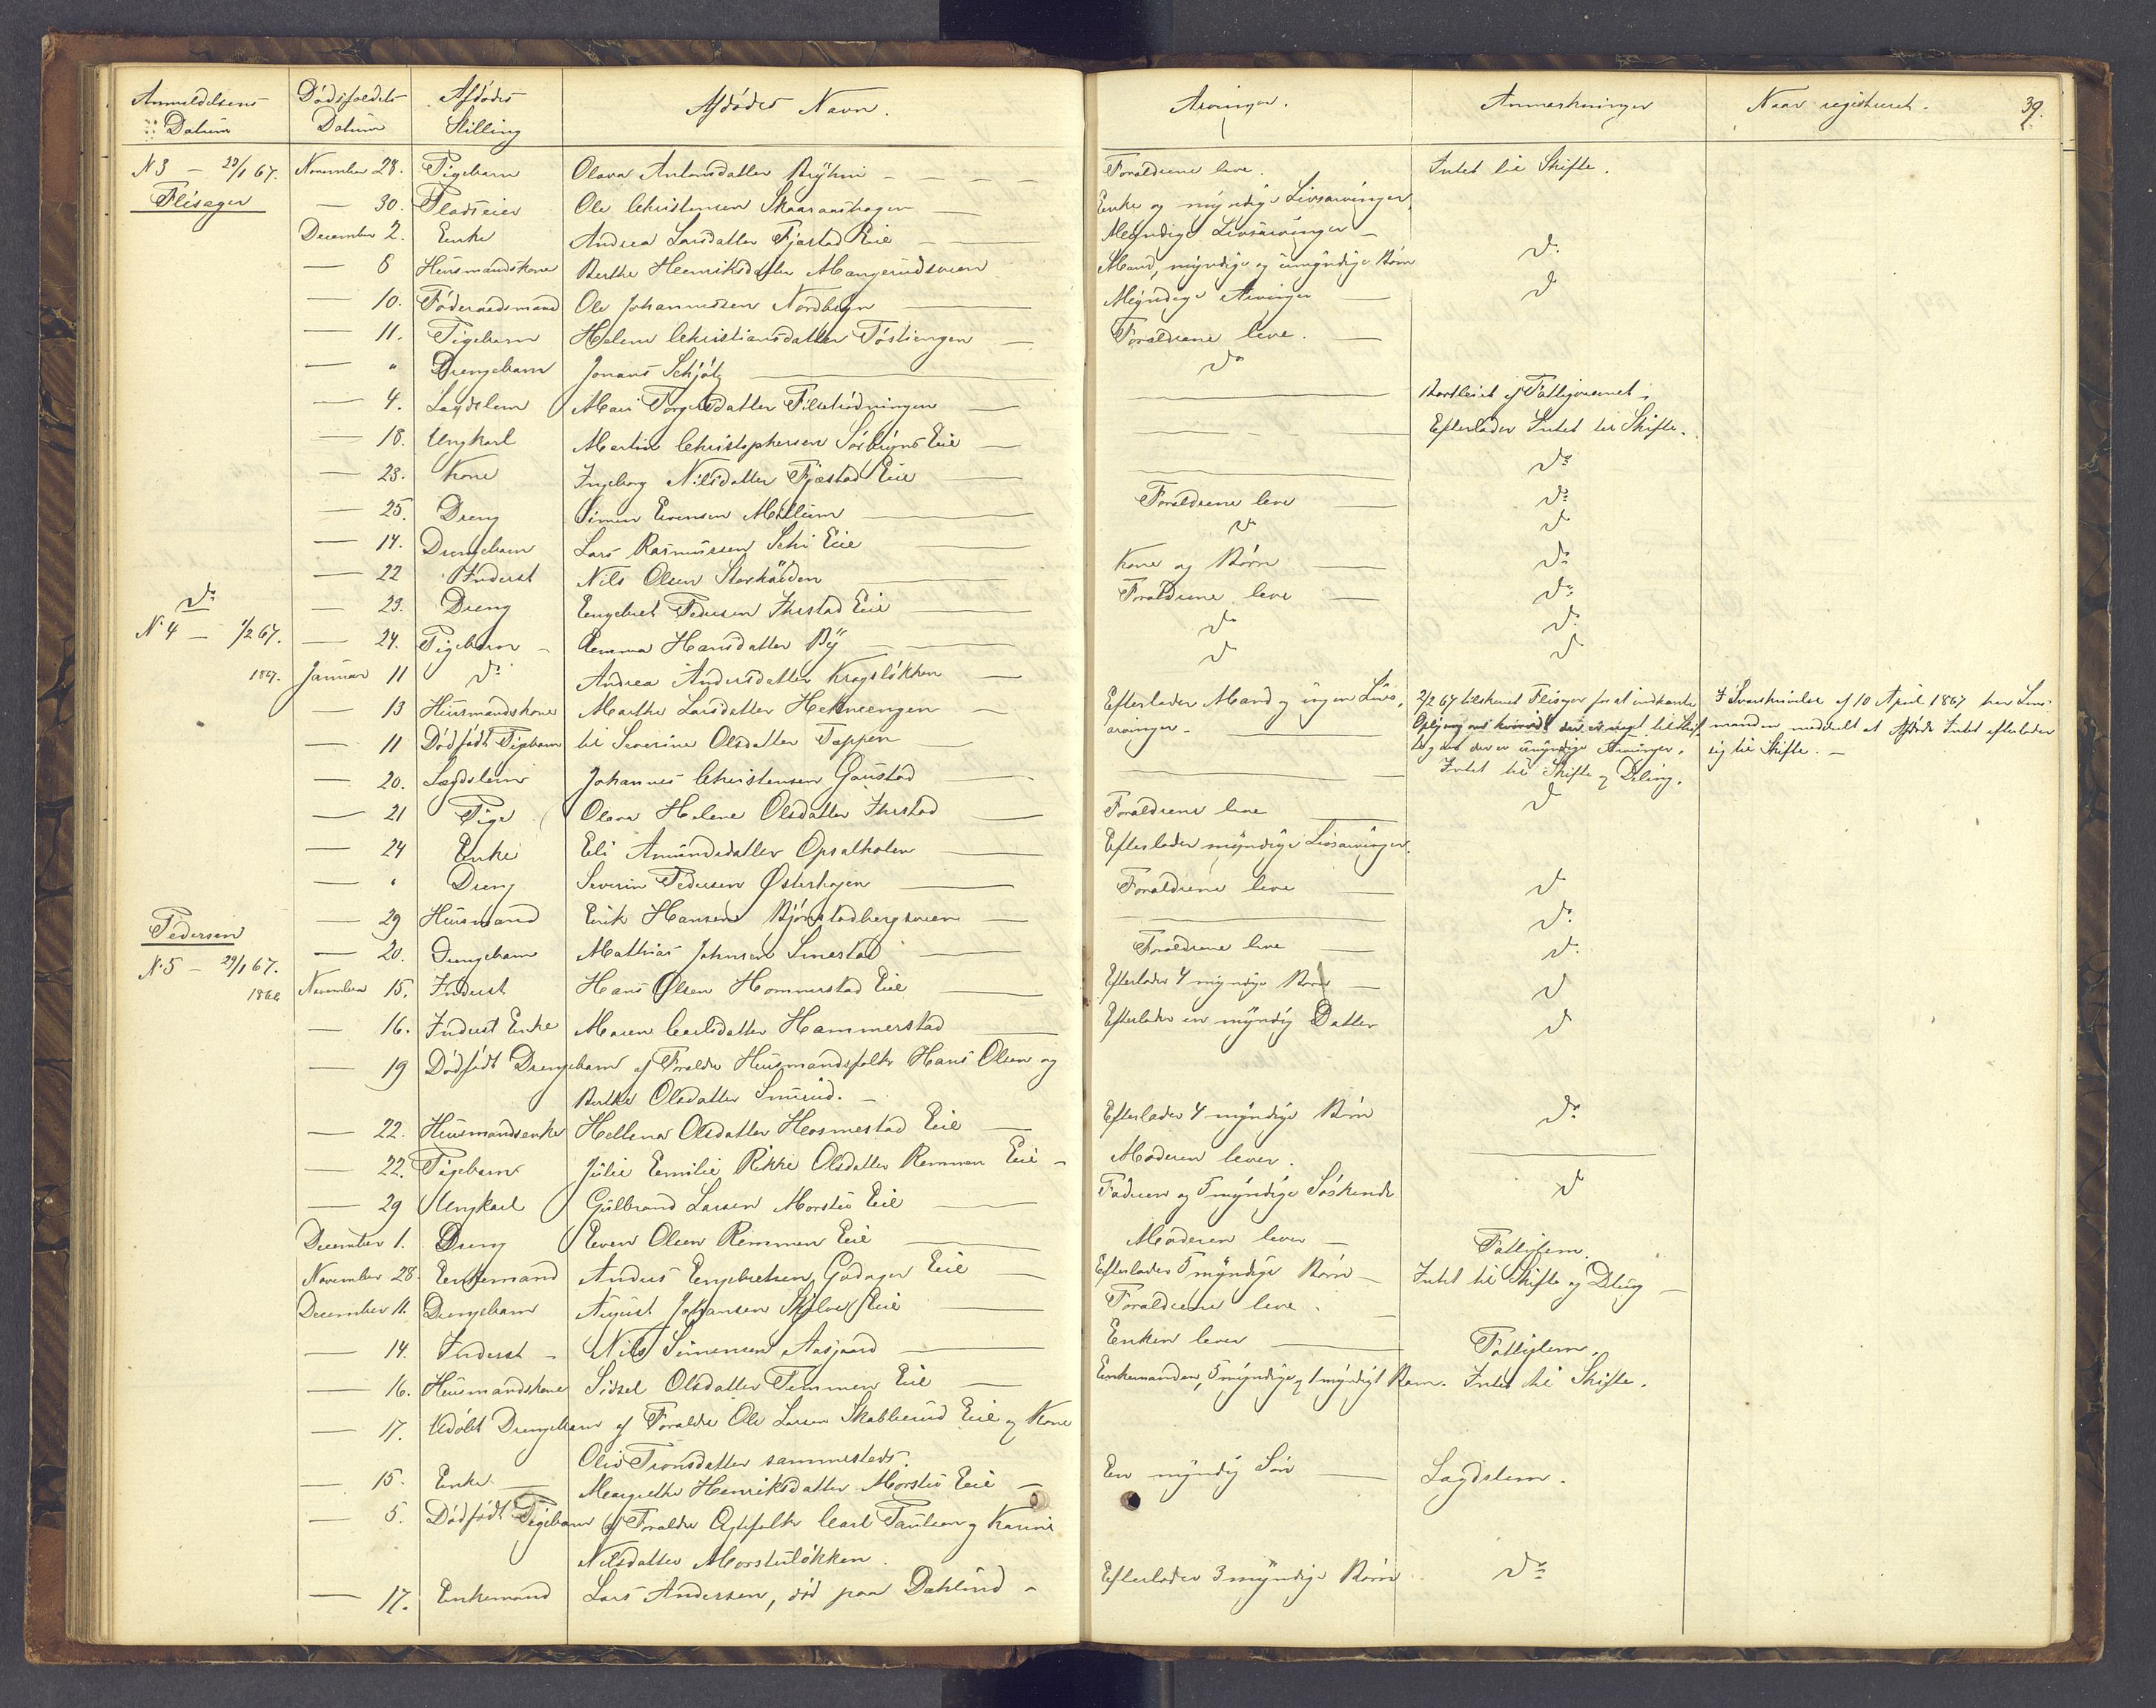 Anmeldelsens Datum Dødsfaldets Datum Afdødes Stilling Afdødes Navn. Arvinger. Anmærkninger Naar registreret. 39.
N 3 — 29/1 67. November 28. Pigebarn Olava Antonsdatter Forældrene leve. Intet til Skifte.
Flisager — 30. Pladseier Ole Christensen Enke og myndige Livsarvinger,
December 2. Enke Andrea Larsdatter Fjæstad Eie Myndige Livsarvinger — do
— 8 Husmandskone Berthe Henriksdatter Mangerudsveen Mand, myndige og umyndige Børn do
— 10. Føderaadsmand Ole Johannessen Nordbyn Myndige Arvinger do
— 11. Pigebarn Helene Christiansdatter Tøstiengen Forældrene leve.
— " Drengebarn Jonans Schjøtz do
— 4. Lægdslem Mari Torgelsdatter Bortleiet af Fattigvæsenet,
— 18. Ungkarl Martin Christophersen Sørbyns Eie Efterlader Intet til Skifte.
— 23. Kone Ingeborg Nilsdatter Fjæstad Eie do
— 25. Dreng Simen Evensen Mællum Forældrene leve do
— 14. Drengebarn Lars Rasmussen Schi Eie do do
— 22 Inderst Nils Olsen Kone og Børn do
do — 29. Dreng Engebret Pedersen Ihrstad Eie Forældrene leve do
N. 4 — 1/2 67. — 24. Pigebarn — Emma Hansdatter By do do
1867. Januar 11 do Andrea Andersdatter Kragsløkken do do
— 13 Husmandskone Marthe Larsdatter Efterlader Mand og ingen Livs, 2/2 67 tilskrevet Flisager for at indhente I Svarskrivelse af 10 April 1867 har Lens-
— 11 Dødfødt Pigebarn til Severine Olsdatter Tappen arvinger — Oplysning om hvorvidt der er noget til Skif- manden meddelt at Afdøde Intet efterlader
te og om der er umyndige Arvinger. sig til Skifte. —
— 20. Lægdslem Johannes Christensen Gaustad Intet til Skifte og Deling.
— 21 Pige Olava Helene Olsdatter Ihrstad Forældrene leve do
— 24 Enke Eli Amundsdatter Opsalholen Efterlader myndige Livsarvinger.
— " Dreng Severin Pedersen Østerhagen Forældrene leve do
Pedersen — 29 Husmand Erik Hansen Bjørnstadbergsveen do
— 20. Drengebarn Mathias Johnsen Smestad Forældrene leve do
N. 5 — 29/1 67.
1866 November 15. Inderst Hans Olsen Hommerstad Eie Efterlader 4 myndige Børn — do
— 16. Inderst Enke Maren Carlsdatter Hammerstad Efterlader en myndig Datter do
— 19 Dødfødt Drengebarn af Forældre Husmandsfolk Hans Olsen og
Berthe Olsdatter Smerud. —
— 22. Husmandsenke Hellena Olsdatter Hosmestad Eie Efterlader 4 myndige Børn do
— 22. Pigebarn Julie Emilie Rikke Olsdatter Remmen Eie — Moderen lever.
— 29 Ungkarl Gulbrand Larsen Morstu Eie Faderen og 5 myndige Søskende do
December 1. Dreng Even Olsen Remmen Eie Moderen lever — Fattiglem.
November 28. Enkemand Anders Engebretsen Godager Eie Efterlader 5 myndige Børn — Intet til Skifte og Deling —
December 11. Drengebarn August Johansen Eie Forældrene leve.
— 14. Inderst — Nils Simensen Aasgaard Enken lever Fattiglem.
— 16. Husmandskone Sidsel Olsdatter Eie Enkemanden, 5 myndige og 1 myndigt Barn. Intet til Skifte.
— 17. Udøbt Drengebarn af Forældre Ole Larsen Skabberud Eie og Kone
Olia Tronsdatter sammesteds.
— 15. Enke — Margrethe Henriksdatter Morstu Eie — En myndig Søn Lægdslem.
— 5. Dødfødt Pigebarn af Forældre Carl Paulsen og Karine
Nilsdatter Morstuløkken.
— 17. Enkemand Lars Andersen, død paa Dahlund — Efterlader 3 myndige Børn do